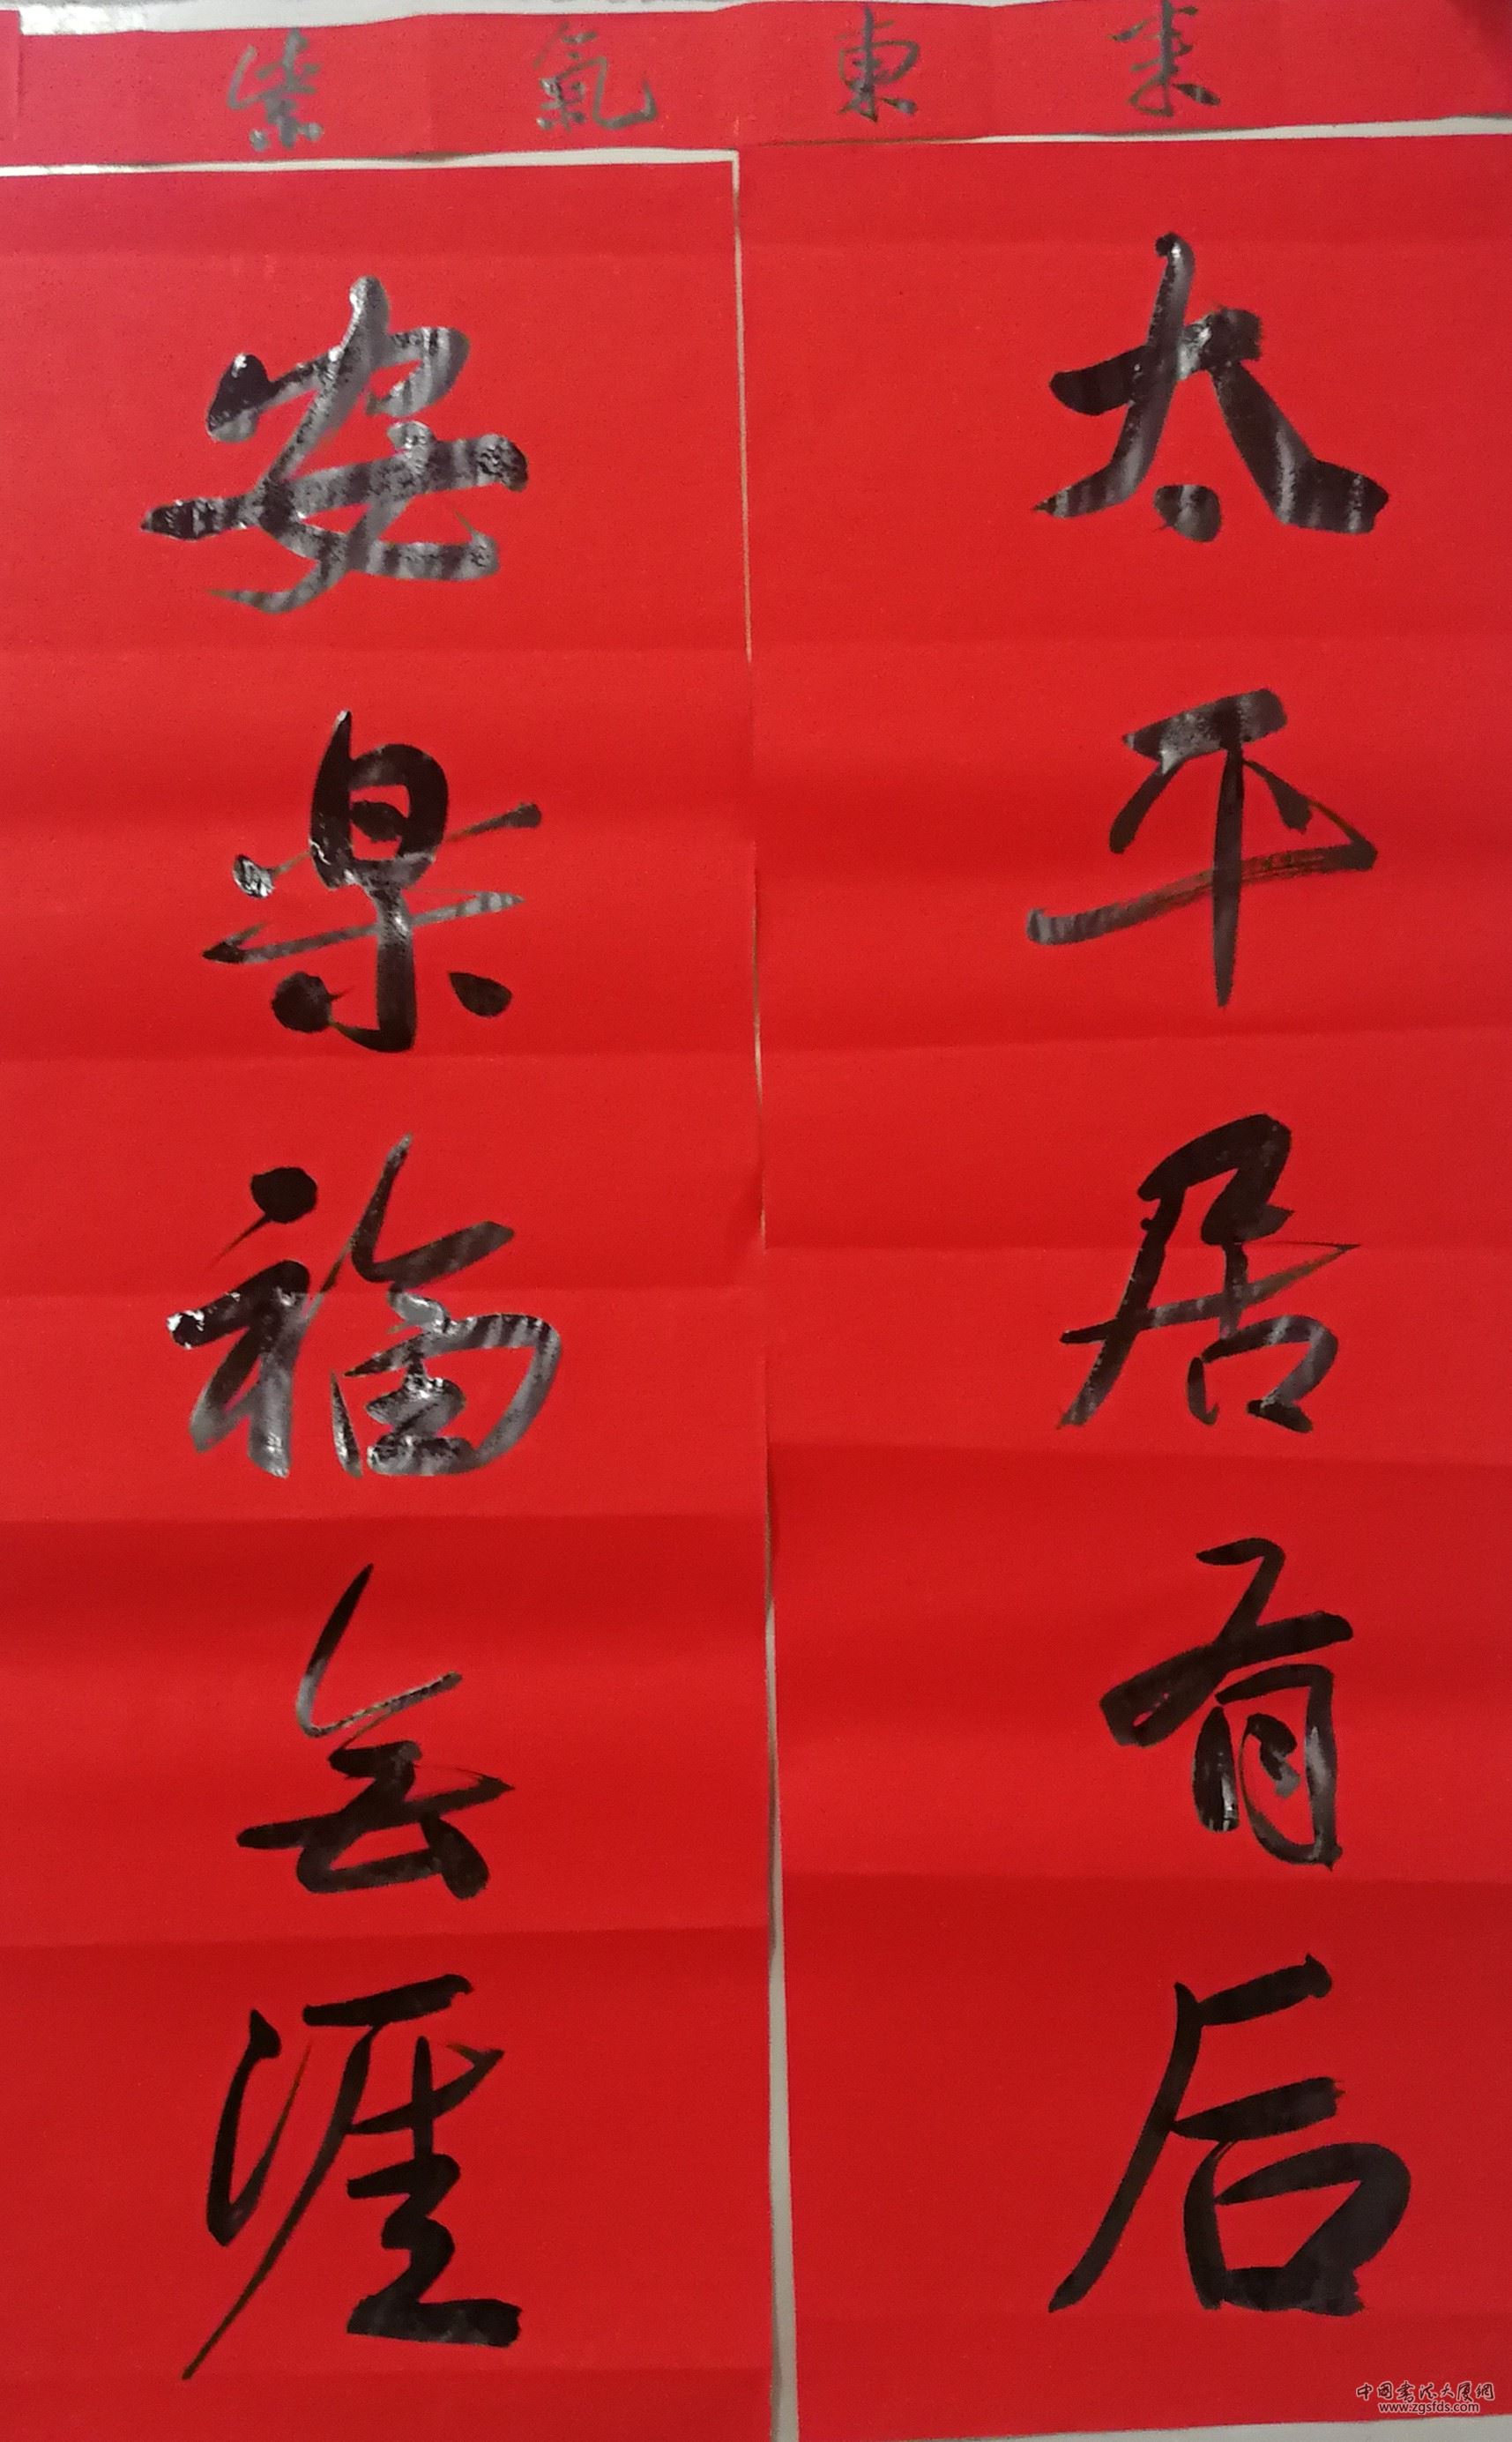 紫氣東来
太平居有后
安楽福无涯
中国书法大厦网
www.zgsfds.com